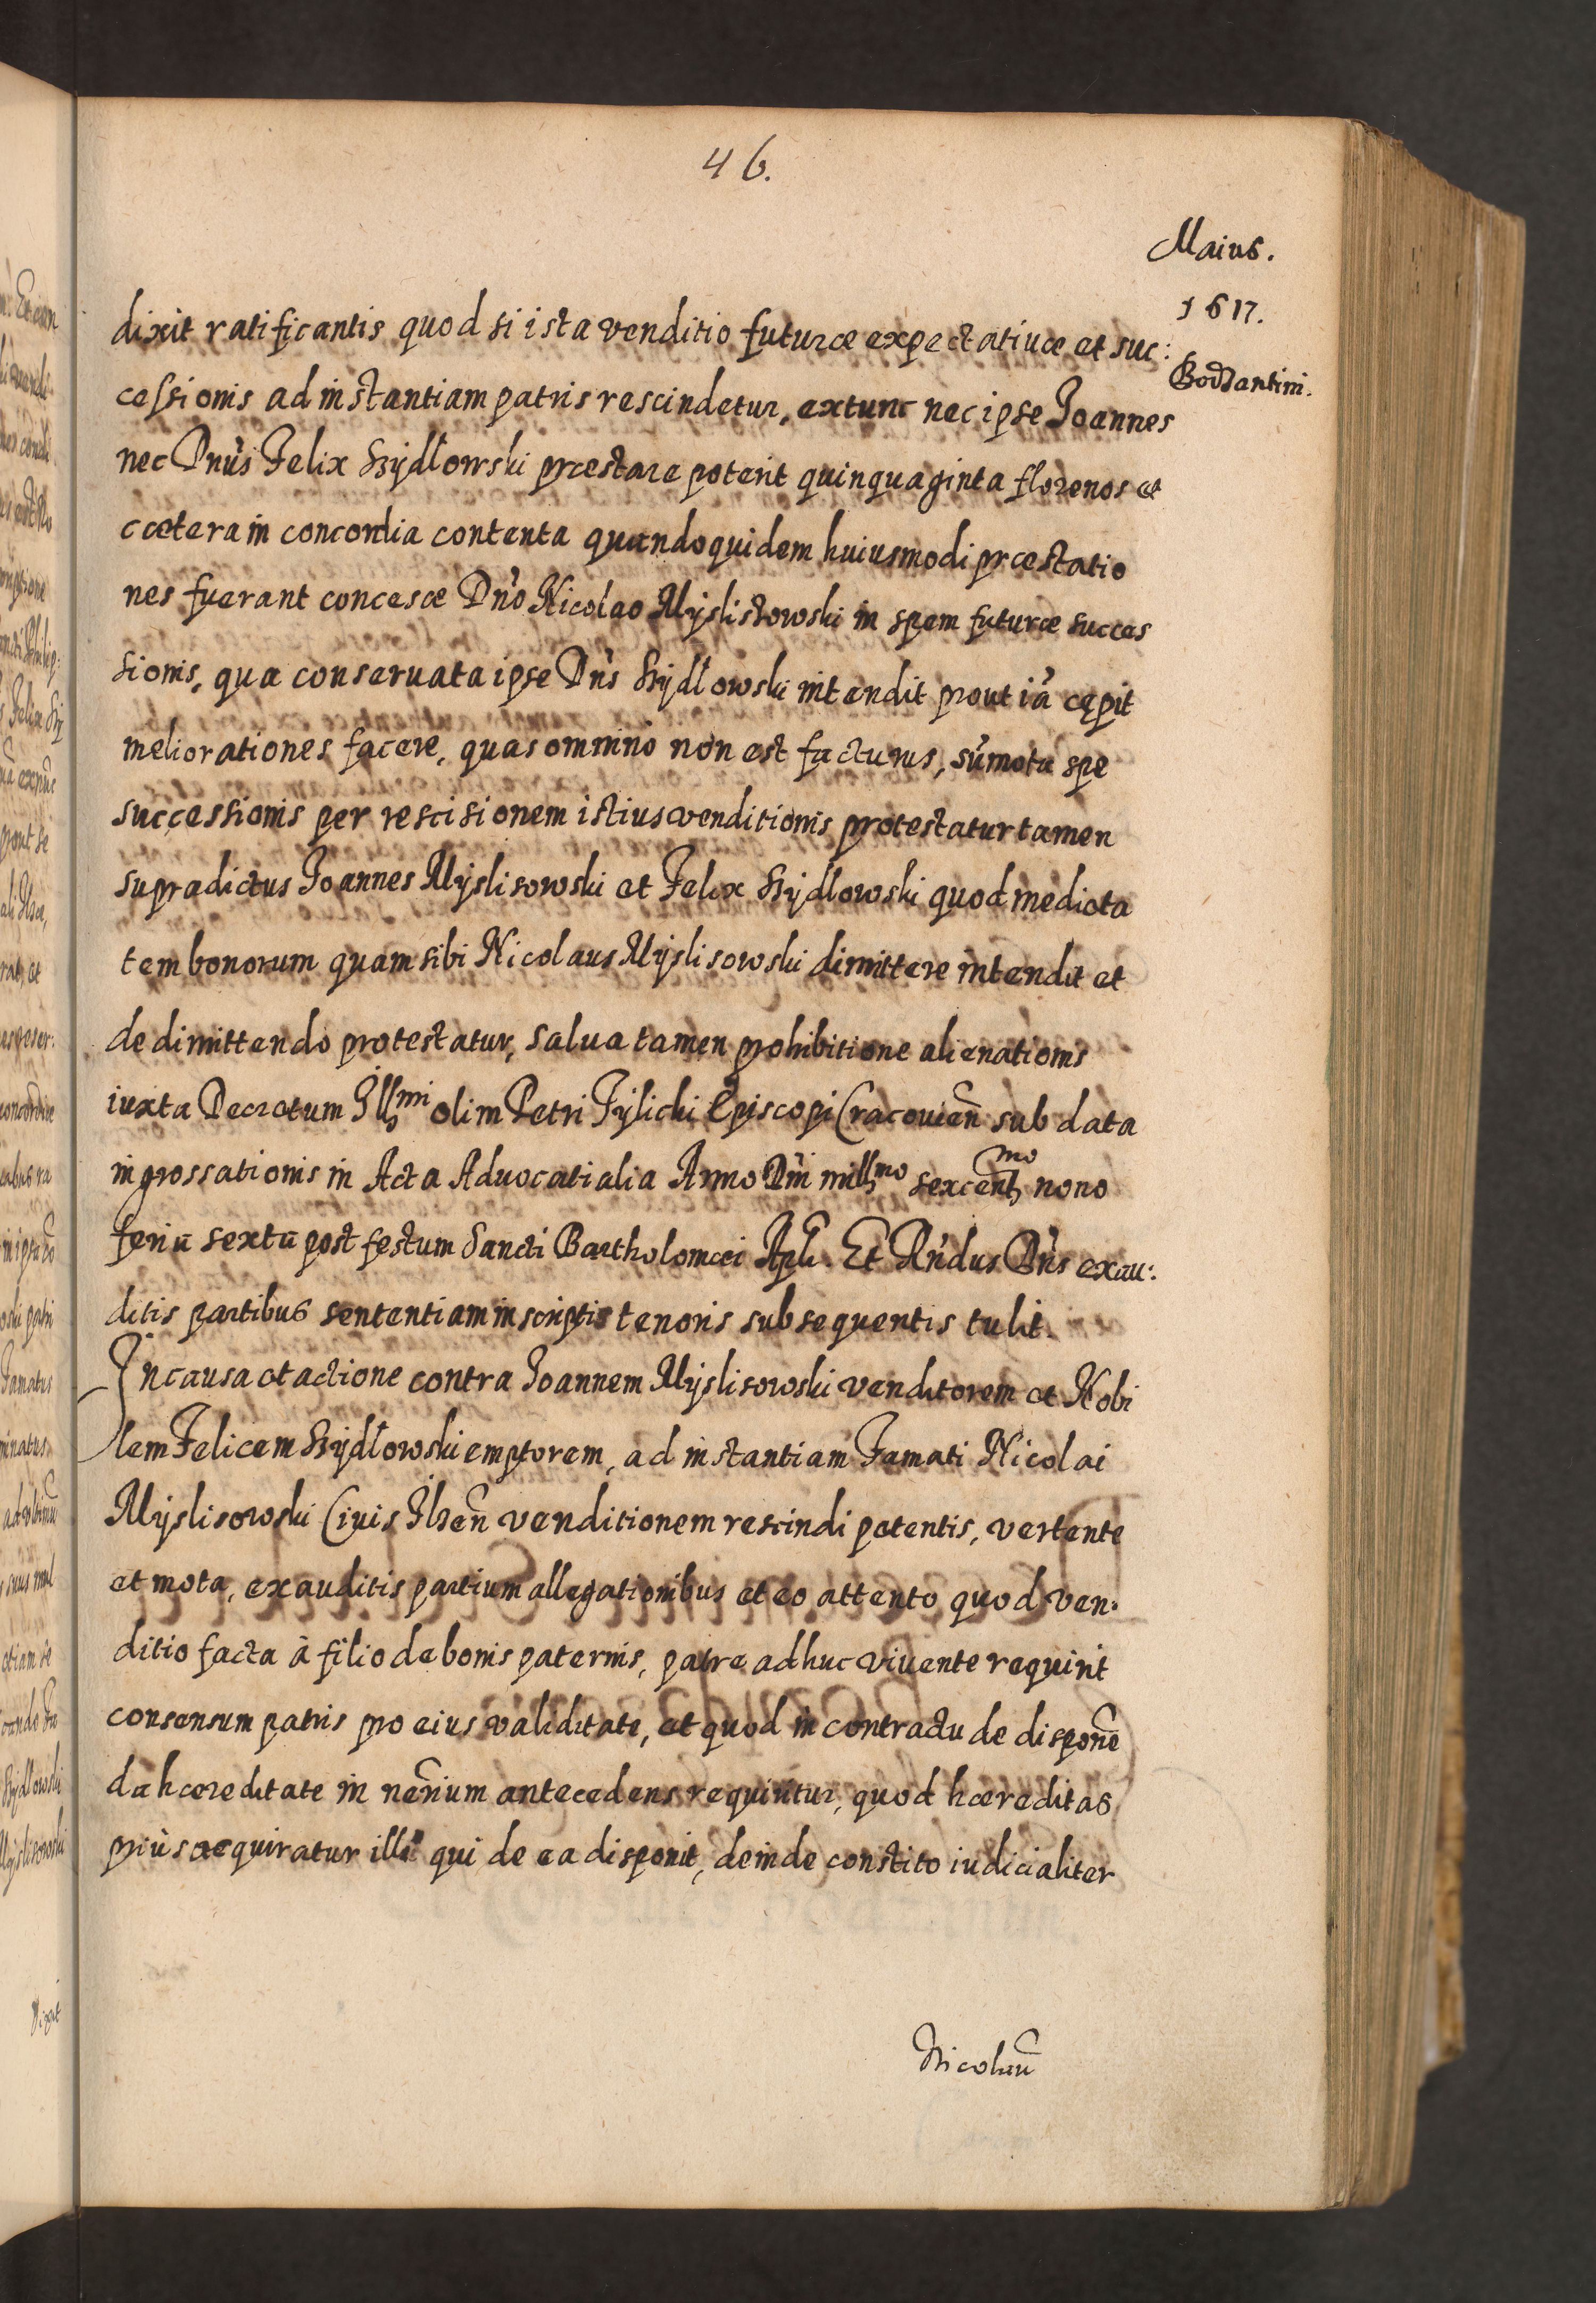 46.
Maius.
1617.
Bodzantini.
dixit ratificantis quod si ista venditio futuræ expectatiuæ et suc:
cessionis ad instantiam patris rescindetur, extunc nec ipse Joannes
nec Dnus Felix Szydłowski præstare poterit quinquaginta florenos et
cætera in concordia contenta quandoquidem huiusmodi præstatio
nes fuerant concesæ Dno Nicolao Myslisowski in spem futuræ succes
sionis, qua conseruata ipse Dns Szydłowski intendit prout iã cępit
meliorationes facere, quas omnino non est facturus, sũmota spe
successionis per rescisionem istius venditionis protestatur tamen
supradictus Joannes Myslisowski et Felix Szydlowski quod medieta
tem bonorum quam sibi Nicolaus Myslisowski dimittere intendit et
de dimittendo protestatur, salua tamen prohibitione alienationis
iuxta Decretum Illmi olim Petri Tylicki Episcopi Cracouien̄ sub data
ingrossationis in Acta Aduocatialia Anno Dni millmo sexcentmo nono
feria sexta post festum Sancti Bartholomæi Apli. Et Rndus Dns exau:
ditis partibus sententiam in scriptis tenoris subsequentis tulit.
In causa et actione contra Joannem Myslisowski venditorem et Nobi
lem Felicem Szydłowski emptorem, ad instantiam Famati Nicolai
Myslisowski Ciuis Ilzen̄ venditionem rescindi petentis, vertente
et mota, exauditis partium allegationibus et eo attento quod ven:
ditio facta à filio de bonis paternis, patre adhuc viuente requirit
consensum patris pro eius validitate, et quod in contractu de disponẽ
da hæreditate in nerium antecedens requiritur, quod hæreditas
priùs acquiratur illi qui de ea disponit, deinde constito iudicialiter
Nicolaũ